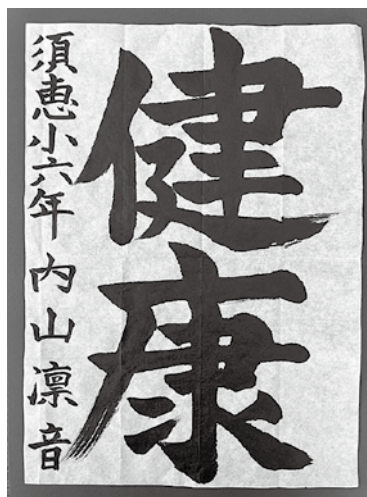 健康
須恵小六年 内山凛音